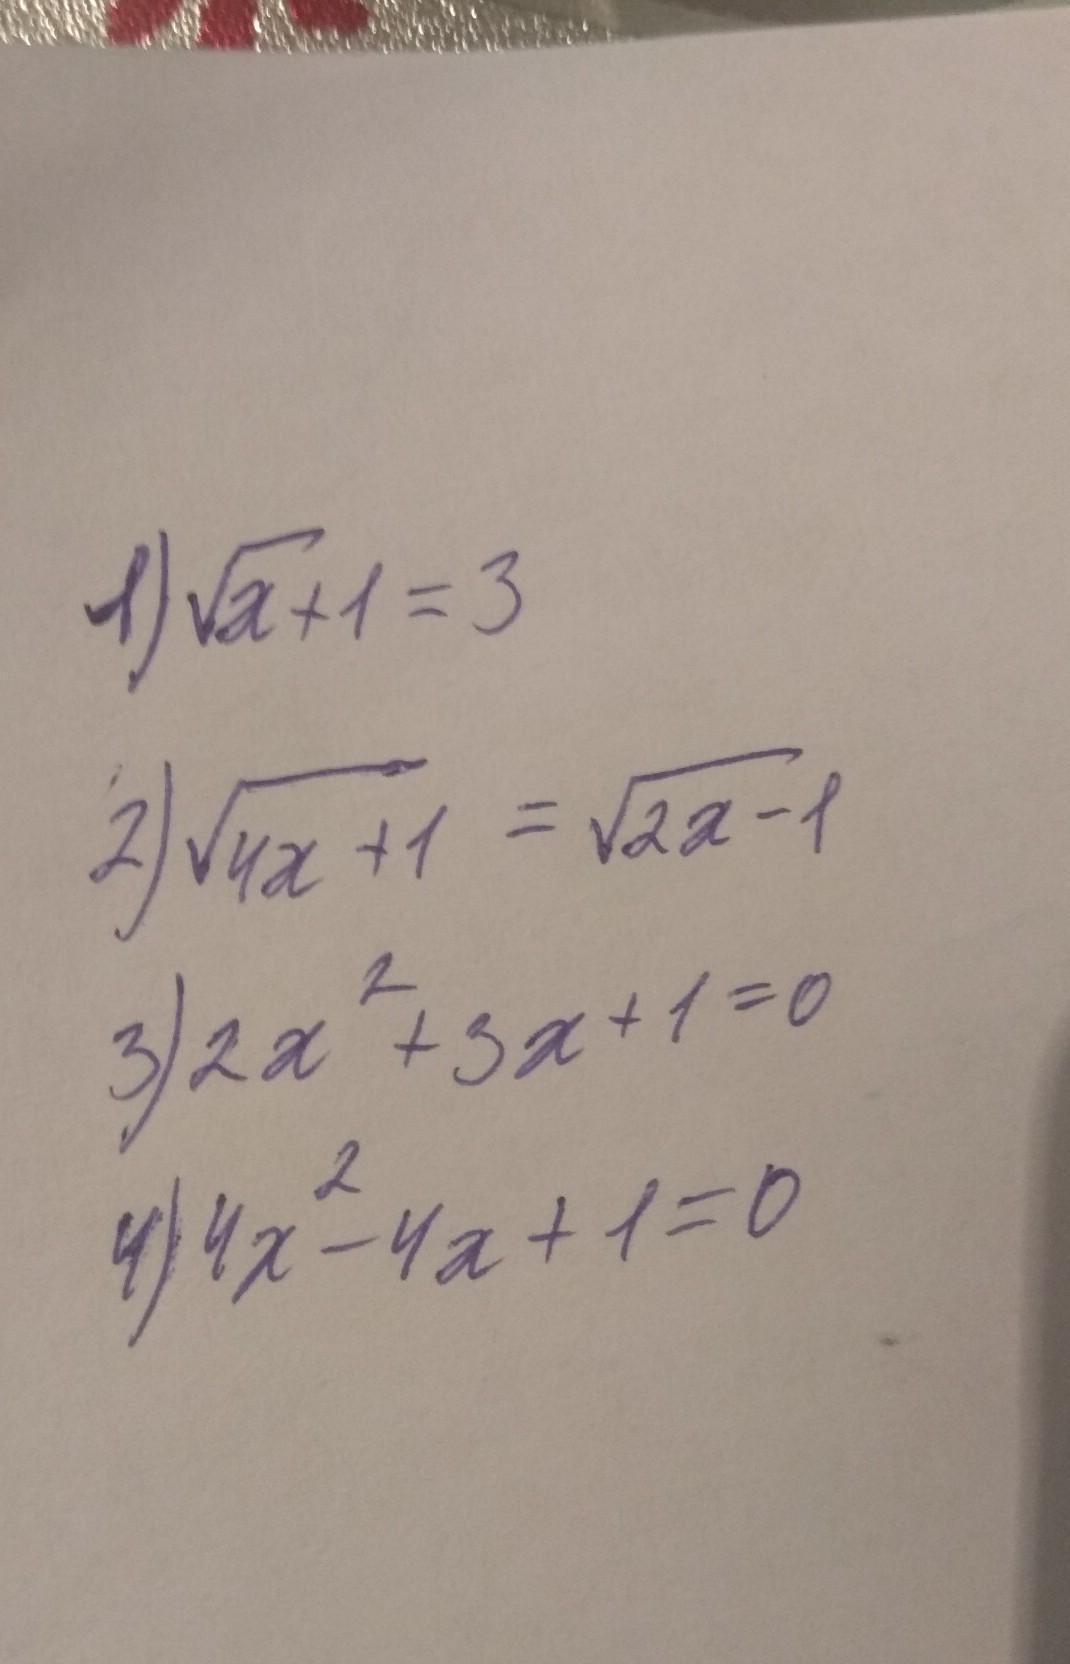 1) √x + 1 = 3
2) √4x + 1 = √2x - 1
3) 2x² + 3x + 1 = 0
4) 4x² - 4x + 1 = 0